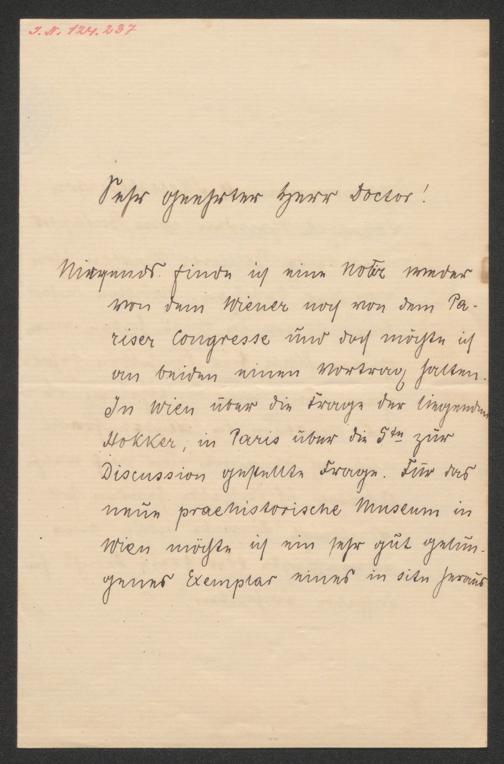 I.N. 124.237
Sehr geehrter Herr Doctor!
Nirgends finde ich eine Notiz weder
von dem Wiener noch von dem Pa-
riser Congresse und doch möchte ich
an beiden einen Vortrag halten.
In Wien über die Frage der liegenden
Hokker, in Paris über die 5te zur
Discussion gestellte Frage. Für das
neue praehistorische Museum in
Wien möchte ich ein sehr gut gelun-
genes Exemplar eines in situ heraus